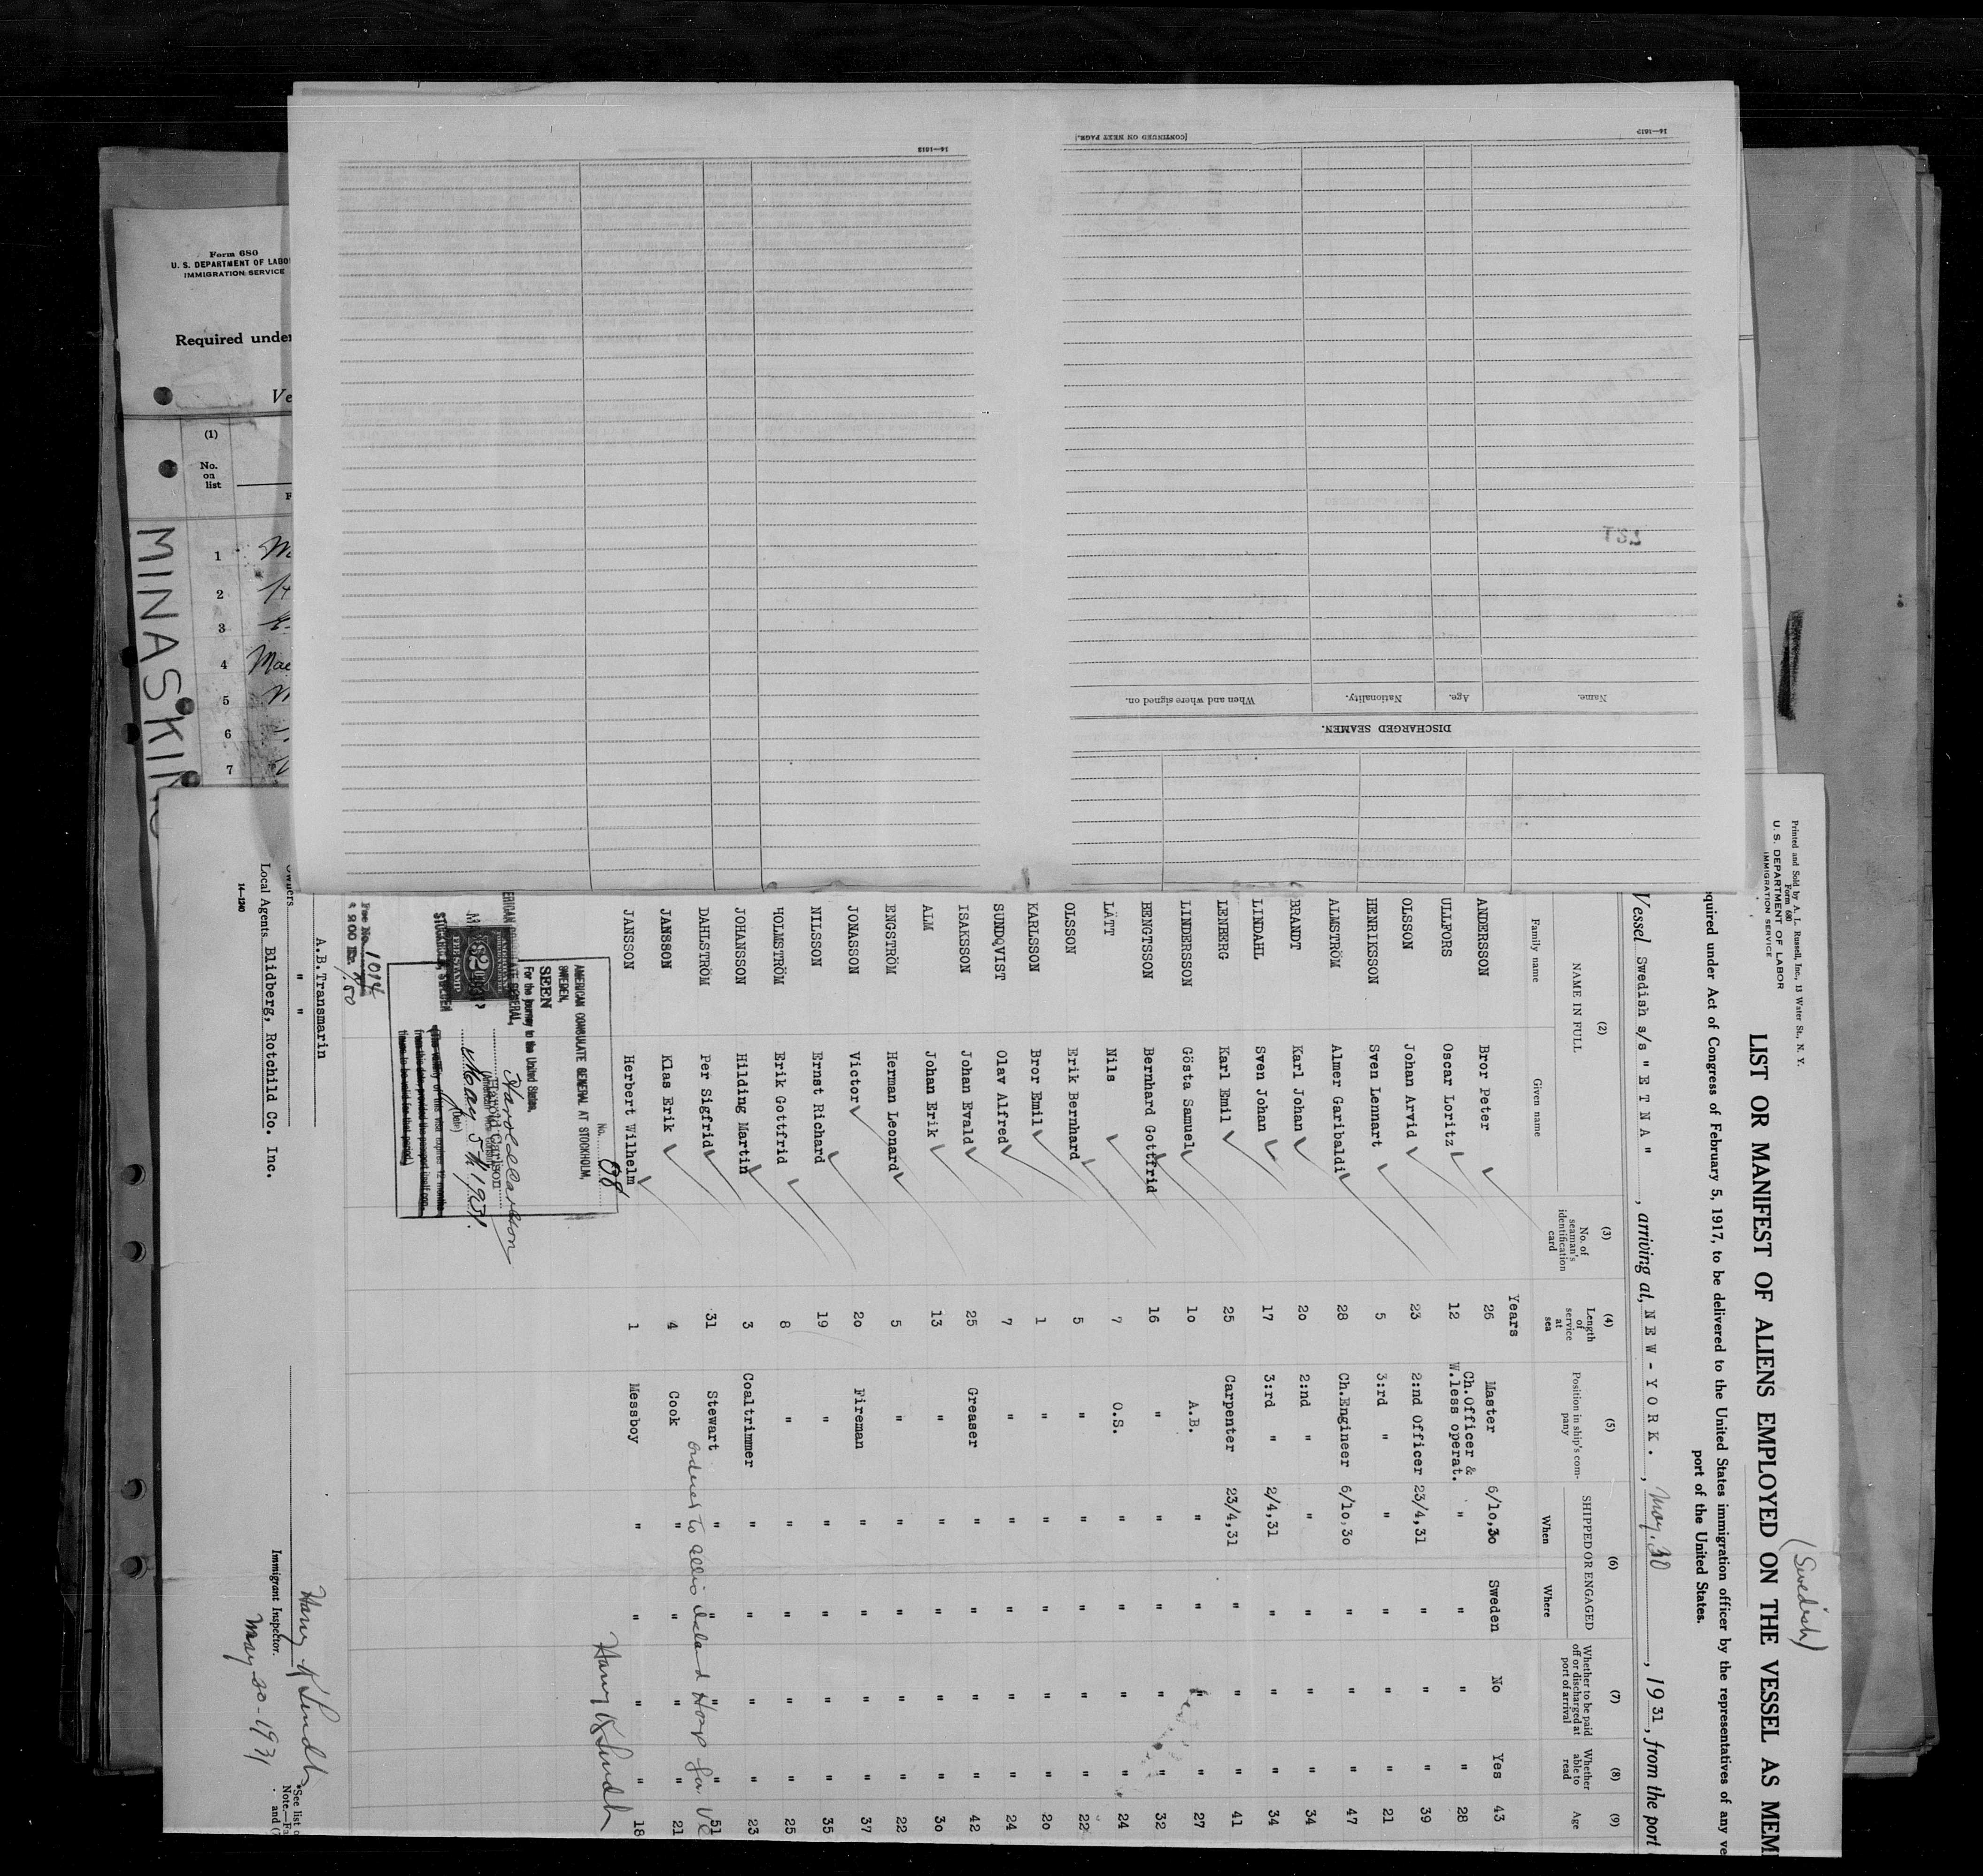 16—1613
[CONTINUED ON NEXT PAGE.]
16—1613
Name.
Age.
Nationality.
When and where signed on.
DISCHARGED SEAMEN.
Form 680
U. S. DEPARTMENT OF LABO
IMMIGRATION SERVICE
Required under
Ve
(1)
No.
on
list
F
1
2
3
4 Mac
5
6
7
MINASKIN
Printed and Sold by A. L. Russell, Inc., 13 Water St., N. Y.
Form 680
U. S. DEPARTMENT OF LABOR
IMMIGRATION SERVICE
(Swedish)
LIST OR MANIFEST OF ALIENS EMPLOYED ON THE VESSEL AS MEM
quired under Act of Congress of February 5, 1917, to be delivered to the United States immigration officer by the representatives of any ve
port of the United States.
Vessel Swedish s/s "ETNA", arriving at, NEW-YORK., May. 30, 1931, from the port
(2) (3) (4) (5) (6) (7) (8) (9)
NAME IN FULL
Family name Given name
No. of seaman's identification card
Length of service at sea
Position in ship's company
SHIPPED OR ENGAGED
When Where
Whether to be paid off or discharged at port of arrival
Whether able to read
Age
Years
ANDERSSON Bror Peter 26 Master 6/10,30 Sweden No Yes 43
ULLFORS Oscar Loritz 12 Ch.Officer & W.less operat. " " " " 28
OLSSON Johan Arvid 23 2:nd Officer 23/4,31 " " " 39
HENRIKSSON Sven Lennart 5 3:rd " " " " " 21
ALMSTRÖM Almer Garibaldi 28 Ch.Engineer 6/10,30 " " " 47
BRANDT Karl Johan 20 2:nd " " " " " 34
LINDAHL Sven Johan 17 3:rd " 2/4,31 " " " 34
LENBERG Karl Emil 25 Carpenter 23/4,31 " " " 41
LINDERSSON Gösta Samuel 10 A.B. " " " " 27
BENGTSSON Bernhard Gottfrid 16 " " " " " 32
LÄTT Nils 7 O.S. " " " " 24
OLSSON Erik Bernhard 5 " " " " " 22
KARLSSON Bror Emil 1 " " " " " 20
SUNDQVIST Olav Alfred 7 " " " " " 24
ISAKSSON Johan Evald 25 Greaser " " " " 42
ALM Johan Erik 13 " " " " " 30
ENGSTRÖM Herman Leonard 5 " " " " " 22
JONASSON Victor 20 Fireman " " " " 37
NILSSON Ernst Richard 19 " " " " " 35
HOLMSTRÖM Erik Gottfrid 8 " " " " " 25
JOHANSSON Hilding Martin 3 Coaltrimmer " " " " 23
DAHLSTRÖM Per Sigfrid 31 Stewart " " " " 51
ordered to Ellis Island Hosp for
JANSSON Klas Erik 4 Cook " " " " 21
JANSSON Herbert Wilhelm 1 Messboy " " " " 18
Harry
No. 98
AMERICAN CONSULATE GENERAL AT STOCKHOLM,
SWEDEN.
SEEN
For the journey to the United States.
Harold Carlson
Harold Carlson
American Vice Consul
May 5th, 1931.
(Date)
The validity of this visa expires 12 months
from this date provided the passport itself con-
tinues to be valid for that period
$2
FEE STAMP
STOCKHOLM, SWEDEN
Fee No. 1094
A.B.Transmarin
Owners " "
Local Agents Blidberg, Rotchild Co. Inc.
14—1240
Harry
Immigrant Inspector.
May 30-1931
*See list o
Note.—Fa
and (7